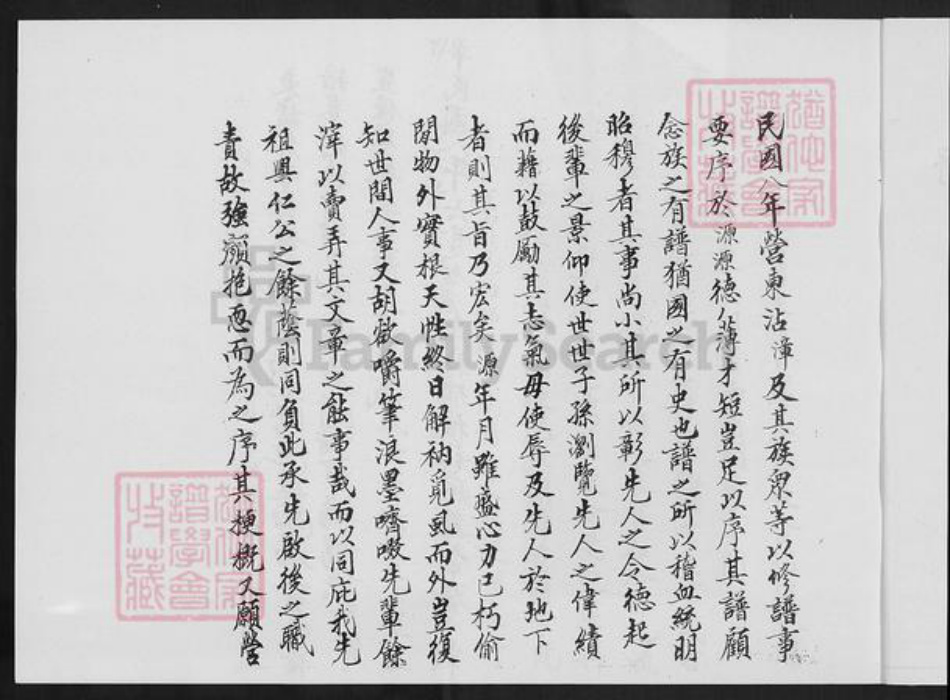 民國八年營東沾漳及其族衆等以修譜事
要序於源源德薄才短豈足以序其譜顧
念族之有譜猶國之有史也譜之所以稽血統明
昭穆者其事尚小其所以彰先人之令德起
後輩之景仰使世世子孫瀏覽先人之偉績
而藉以鼓勵其志氣毋使辱及先人於地下
者則其旨乃宏矣源年月雖盛心力已朽偷
閒物外實根天性終日解衲覓虱而外豈復
知世間人事又胡欲嚼筆浪墨嚌啜先輩餘
滓以賣弄其文章之能事哉而以同庇我先
祖興仁公之餘蔭則同負此承先啟後之職
責故強顏抱惡而為之序其梗概又願營
猶他家譜學會收藏
FamilySearch
猶他家譜學會收藏